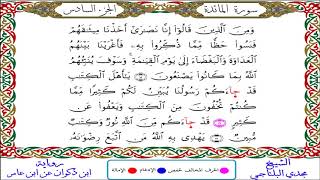 سورة المائدة
الجزء السادس
وَمِنَ ٱلَّذِينَ قَالُوٓا۟ إِنَّا نَصَـٰرَىٰٓ أَخَذْنَا مِيثَـٰقَهُمْ
فَنَسُوا۟ حَظًّا مِّمَّا ذُكِّرُوا۟ بِهِۦ فَأَغْرَيْنَا بَيْنَهُمُ
ٱلْعَدَاوَةَ وَٱلْبَغْضَآءَ إِلَىٰ يَوْمِ ٱلْقِيَـٰمَةِ وَسَوْفَ يُنَبِّئُهُمُ
ٱللَّهُ بِمَا كَانُوا۟ يَصْنَعُونَ يَـٰٓأَهْلَ ٱلْكِتَـٰبِ
قَدْ جَآءَكُمْ رَسُولُنَا يُبَيِّنُ لَكُمْ كَثِيرًا مِّمَّا
كُنتُمْ تُخْفُونَ مِنَ ٱلْكِتَـٰبِ وَيَعْفُوا۟ عَن
كَثِيرٍ قَدْ جَآءَكُم مِّنَ ٱللَّهِ نُورٌ وَكِتَـٰبٌ
مُّبِينٌ يَهْدِى بِهِ ٱللَّهُ مَنِ ٱتَّبَعَ رِضْوَٰنَهُۥ
الشيخ
مجدي البلتاجي
الحرف المخالف لحفص الإدغام الإمالة
رواية
ابن ذكوان عن ابن عامر